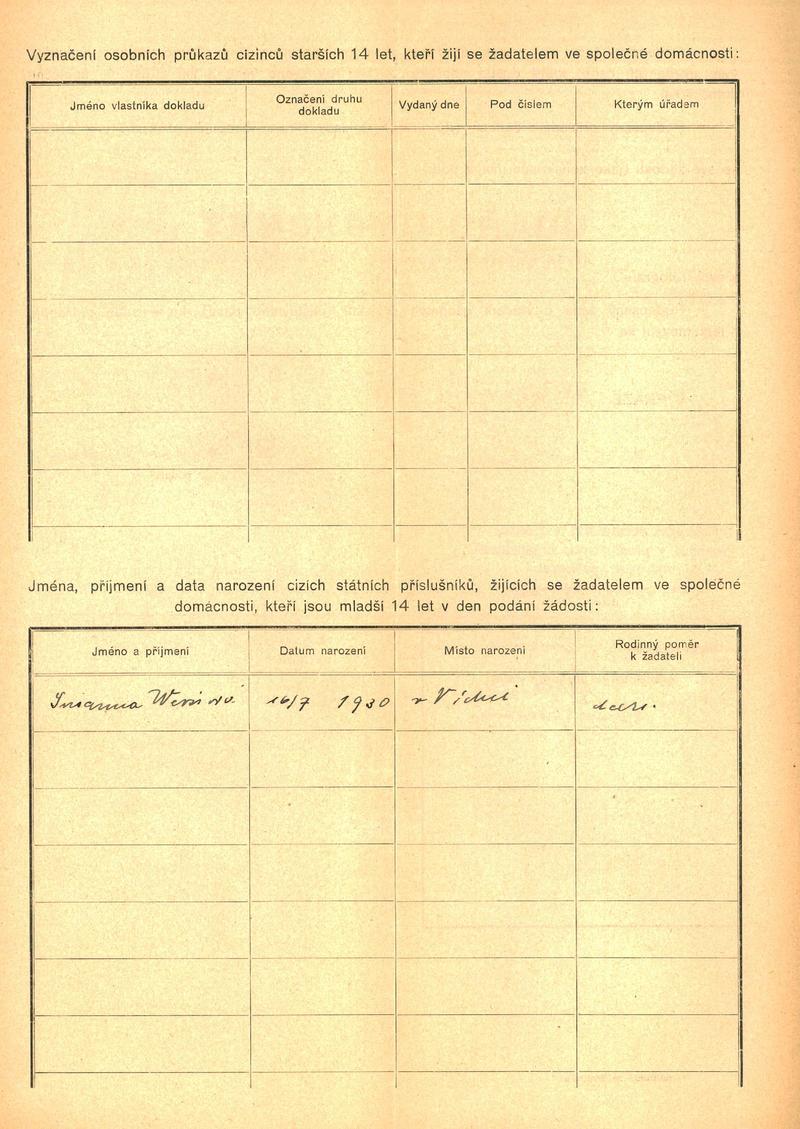 Vyznačení osobních průkazů cizinců starších 14 let, kteří žijí se žadatelem ve společné domácnosti:
Jméno vlastníka dokladu
Označení druhu
dokladu
Vydaný dne
Pod číslem
Kterým úřadem
Jména, příjmení a data narození cizích státních příslušníků, žijících se žadatelem ve společné
domácnosti, kteří jsou mladší 14 let v den podání žádosti:
Jméno a příjmení
Datum narození
Místo narození
Rodinný poměr
k žadateli
16/7 1930
v Vídni